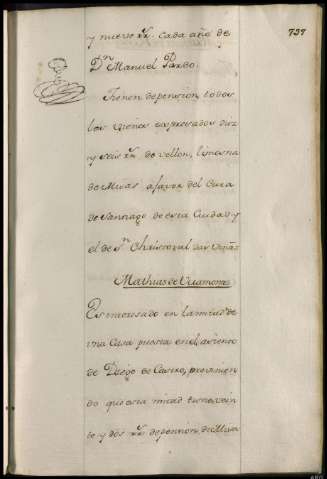 737
y nueve rr. cada año de
Dn. Manuel Pardo.
Tienen de pension, todos
los vienes expresados diez
y seis rr. de vellon, limosna
de Misas afavor del Cura
de Santiago de esta Ciudad y
el de Sn. Christoval das Viñas
Mathias de Viamonte
Es interesado en la mitad de
una Casa puesta en el
de Diego de Castro,
do que esta mitad tiene vein
te y dos rr. de pension, de Misa